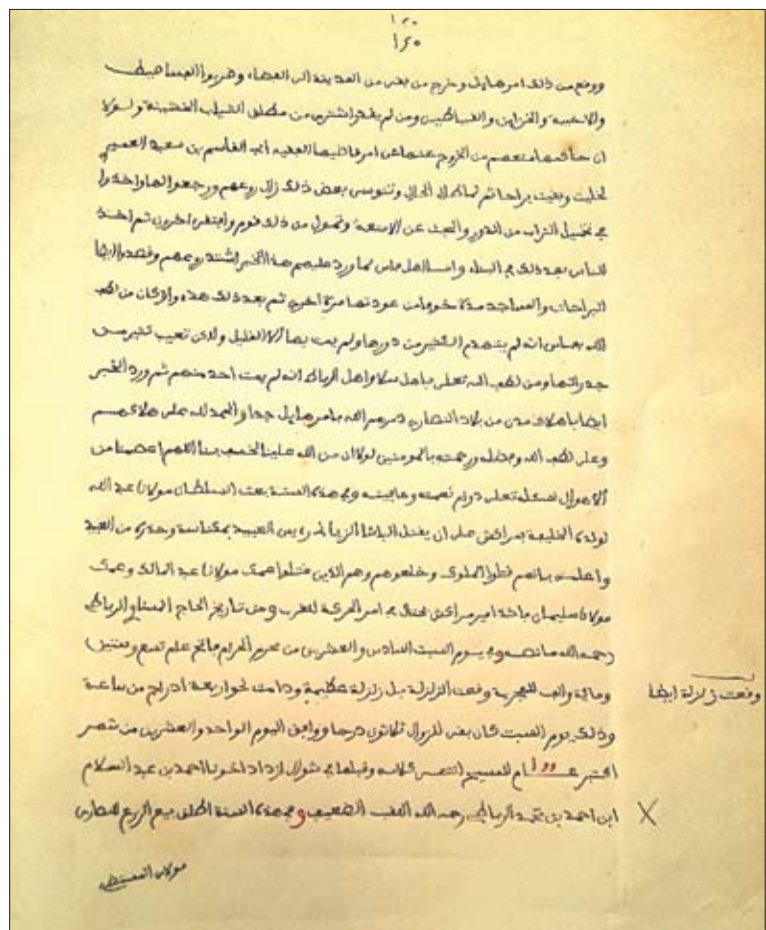 ١٢٠
١٢٥
ووقع من ذلك امر هايل وخرج من بقى من المدينة الى الفضاء وضربوا
والاخبية والخزاين والفساطيس ومن لم يقدر اشترى من مطلق الثياب الخشينة ولولا
ان حاكمها منعهم من الخروج عنها على امر قاضيها الفقيه ابى القاسم بن سعيد العميرى
لخليت وبقيت براحا ثم لما الحال وتنوسى بعض ذلك زال روعهم ورجعوا اليها واخذوا
فى التراب من الدور والبحث عن الامتعة وتمول من ذلك قوم وافتقر اخرون ثم اخذ
الناس بعد ذلك فى البناء واما اهل فاس لما ورد عليهم هذا الخبر اشتد روعهم وقصدوا ايضا
البراحات والمساجد مدة خوفا من عودتها مرة اخرى ثم بعد ذلك هدءوا وكان من لطف
الله بفاس انه لم ينهدم الكثير من دورها ولم يمت بها الا القليل ولاكن تعيب كثير من
جدراتها ومن لطف الله تعلى باهل سلا واهل الرباط انه لم يمت احد منهم ثم ورد الخبر
ايضا باهلاك مدن من بلاد النصارى دمرهم الله بامر هايل جدا والحمد لله على هلاكهم
وعلى لطف الله وفضله ورحمته بالمومنين لولا ان من الله علينا لخسف بنا اللهم اعصمنا من
الاهوال نسئله تعلى دوام نعمته وعافيته وفى هذه السنة بعث السلطان مولانا عبد الله
لولده الخليفة بمراكش على ان يقتل الباشا الزيانى رييس العبيد بمكناسة وحذره من العبيد
واعلمه بانهم قتلوا الملوك وخلعوهم وهم الذين قتلوا عمك مولانا عبد المالك وعمك
مولانا سليمان فاخذ امير مراكش يحتال فى امر الحركة للغرب ومن تاريخ الحاج الرباطى
رحمه الله ما نصه وفى يوم السبت السادس والعشرين من محرم الحرام فاتح علم تسع وستين
وماية والف للهجرية وقعت الزلزلة بل زلزلة عظيمة ودامت نحو اربعة ادرج من ساعة
وذلك يوم السبت كان بقى للزوال ثلاثون درجا ووافق اليوم الواحد والعشرين من شهر
اكتبر عام للمسيح انتهى كلامه وقبلها فى شوال ازداد اخونا احمد بن عبد السلام
ابن احمد بن محمد الرباطى رحمه الله اللقب الضعيف وفى هذه السنة اطلق بيع الزرع للنصارى
وقعت زلزلة ايضا
مولاى